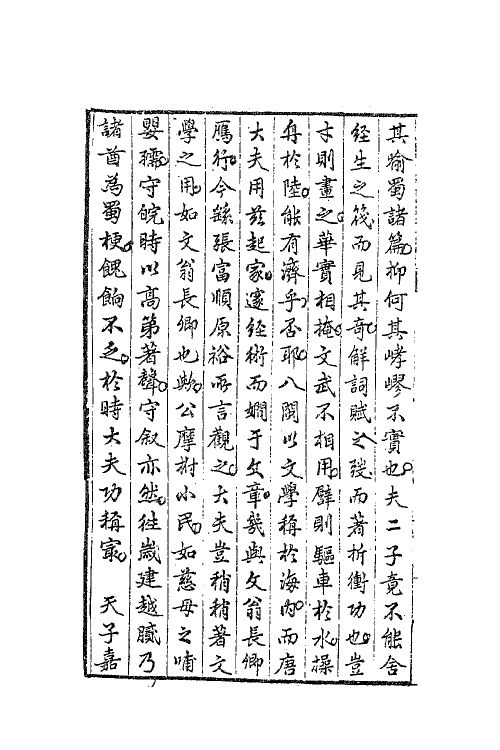 其喻蜀諸篇抑何其崢嶸不實也夫二子竟不能舍
经生之筏而見其奇解詞賦之弢而著折衝功也豈
才則畫之華實相掩文武不相用譬則驅車於水操
舟於陸能有濟乎否耶八閩以文學稱於海內而唐
大夫用兹起家邃经術而嫺于文章幾與文翁長卿
鴈行今繇張富順原裕所言觀之大夫豈稍稍著文
學之用如文翁長卿也歟公摩拊小民如慈母之哺
嬰孺守皖時以高第著聲守叙亦然往嵗建越贓乃
諸酋為蜀梗餽餉不乏於時大夫功稱冣 天子嘉